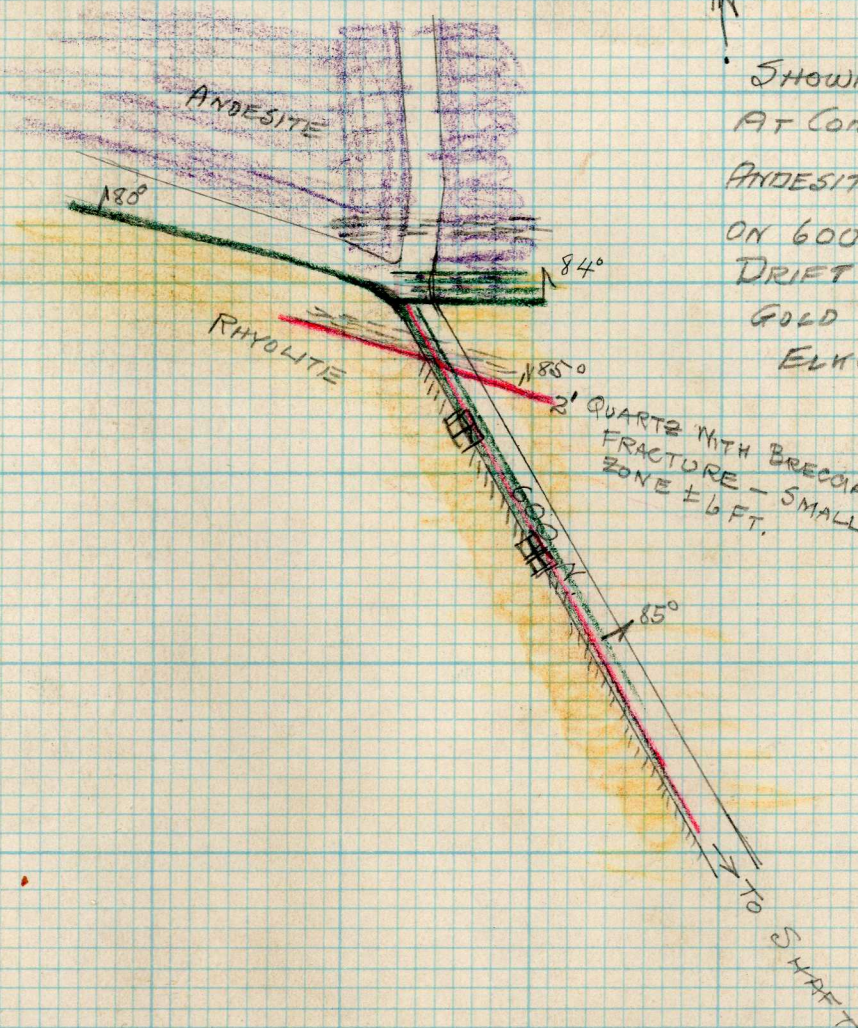 N
SHOWI
AT CON
ANDESIT
ON 600
DRIFT
GOLD
ELK
ANDESITE
80°
84°
RHYOLITE
85°
2' QUARTZ WITH BRECCIA
FRACTURE - SMALL
ZONE ± 6 FT.
600 N
85°
TO SHAFT